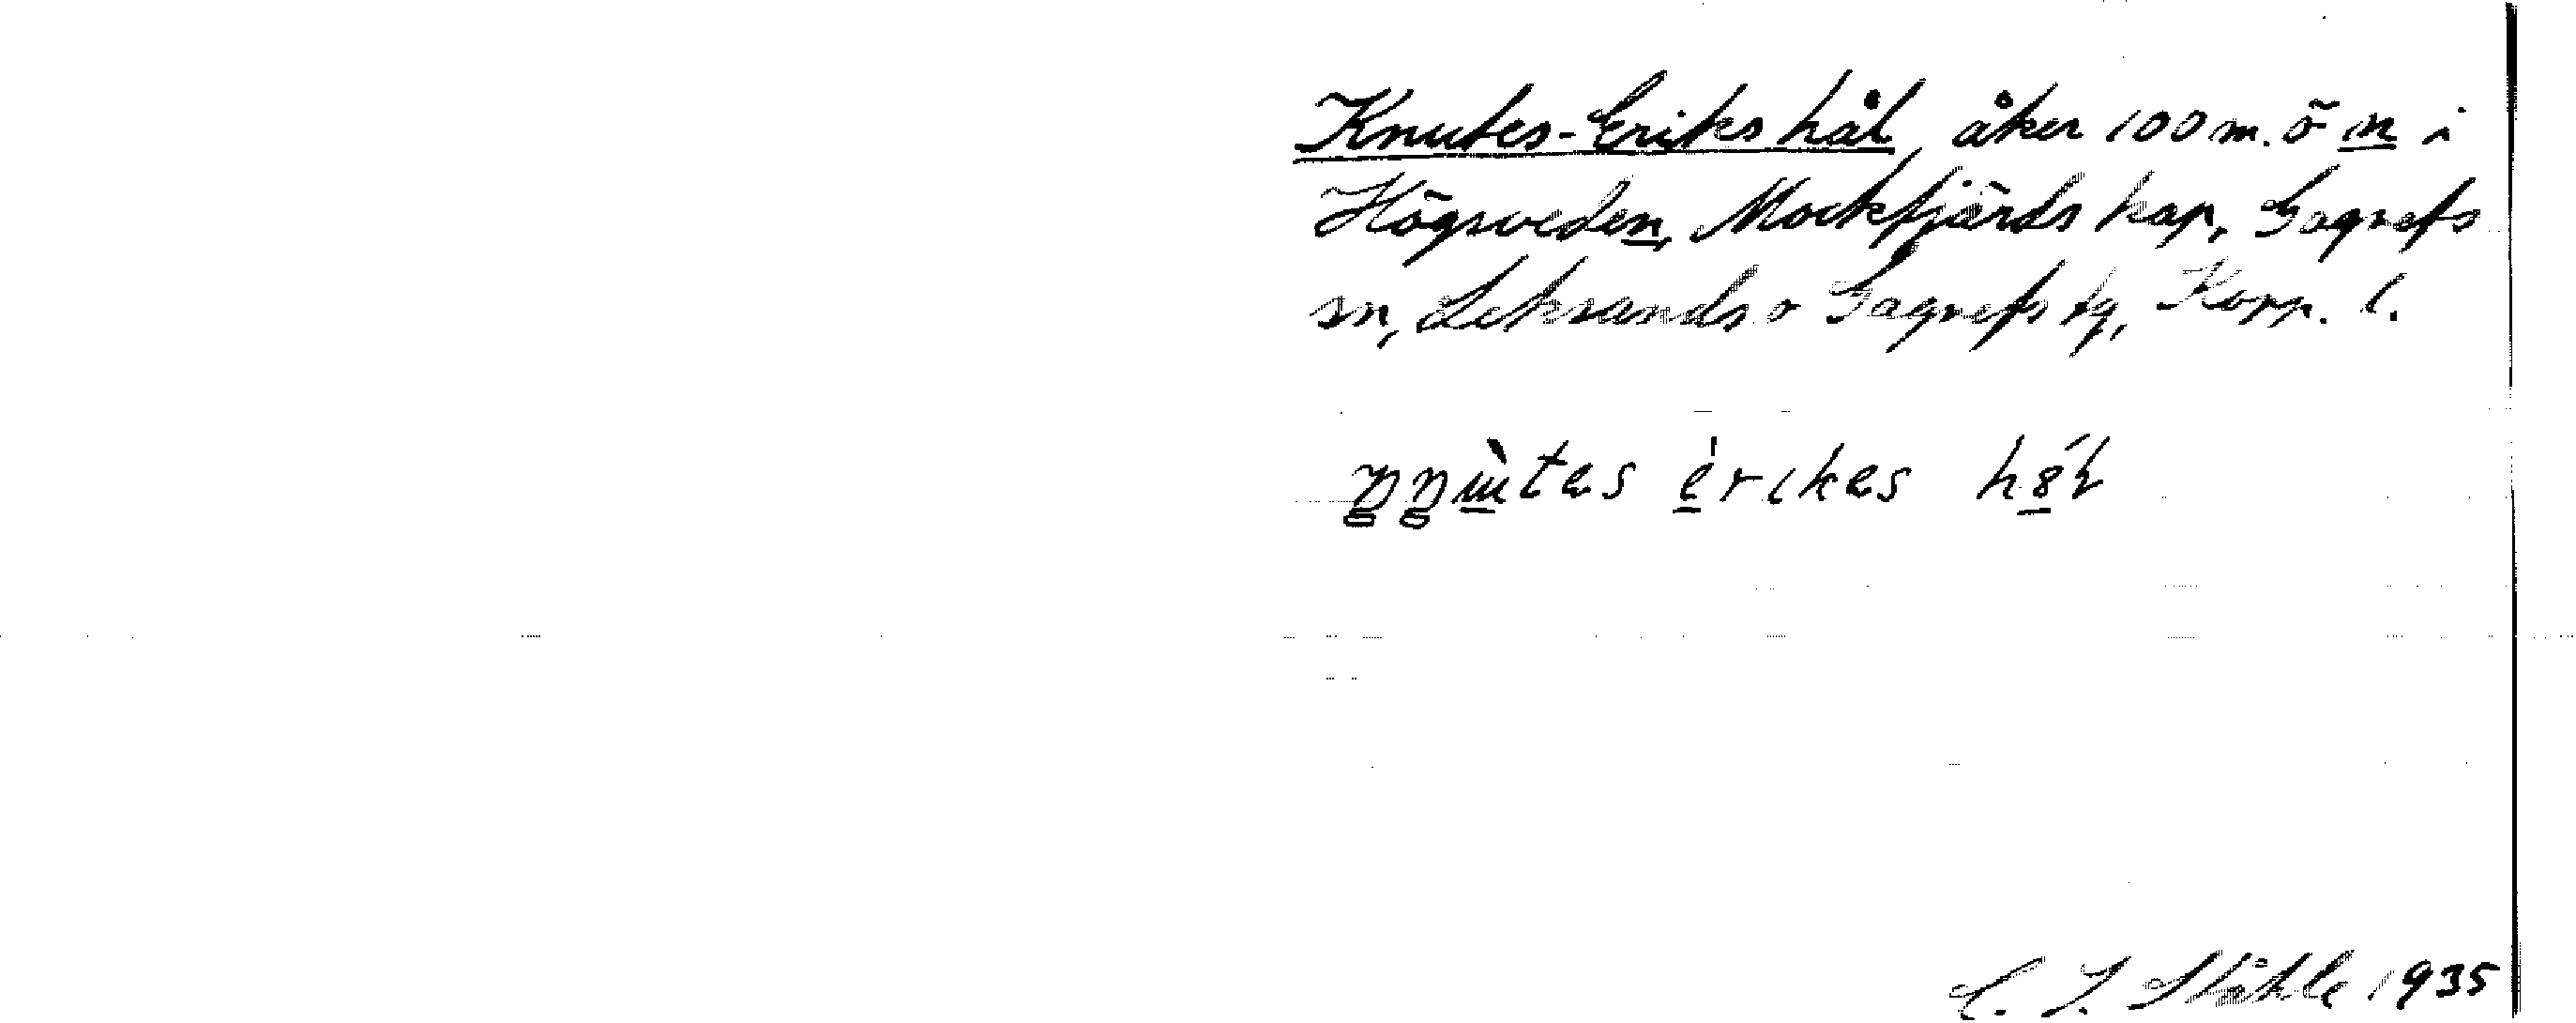 Knutes-Eriks hål, åker 100 m. ö m i
Högsveden, Mockfjärds kap, Gagnefs
sn, Leksands o Gagnefs tg, Kopp. l.
èrikes
C. I. Ståhle 1935